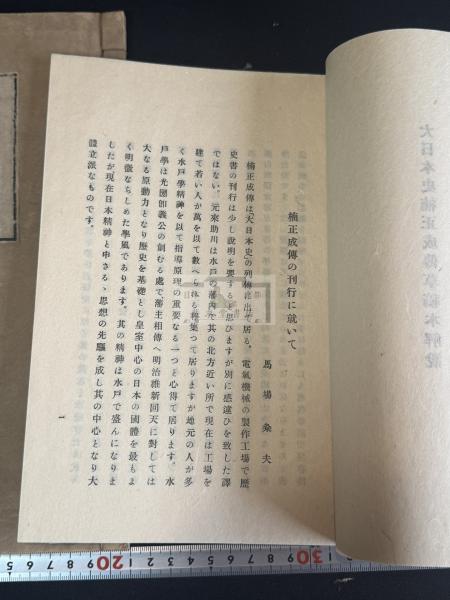 楠正成傳の刊行に就いて
馬場粂夫
楠正成傳は大日本史の列傳に出て居る。電氣機械の製作工場で歴
史書の刊行は少し說明を要すると思ひますが別に感違ひを致した譯
ではない。元來助川は水戶の藩內で其の北方近い所で現在は工場を
建て若い人が萬を以て數へられる程集つて居りますが地元の人が多
く水戶學精神を以て指導原理の重要なる一つと心得て居ります。水
戶學は光圀卽義公の創むる處で藩主相傳へ明治維新回天に對しては
大なる原動力となり歷史を基礎とし皇室中心の日本の國體を最もよ
く明徵ならしめた學風であります。其の精神は水戶で盛んになりま
したが現在日本精神と申さるゝ思想の先驅を成し其の中心となり大
體立派なものです。
一
大日本史楠正成傳草稿本解說
5 6 7 8 9 20 1 2 3 4 5 6 7 8 9 30 1 2 3 4 5 6